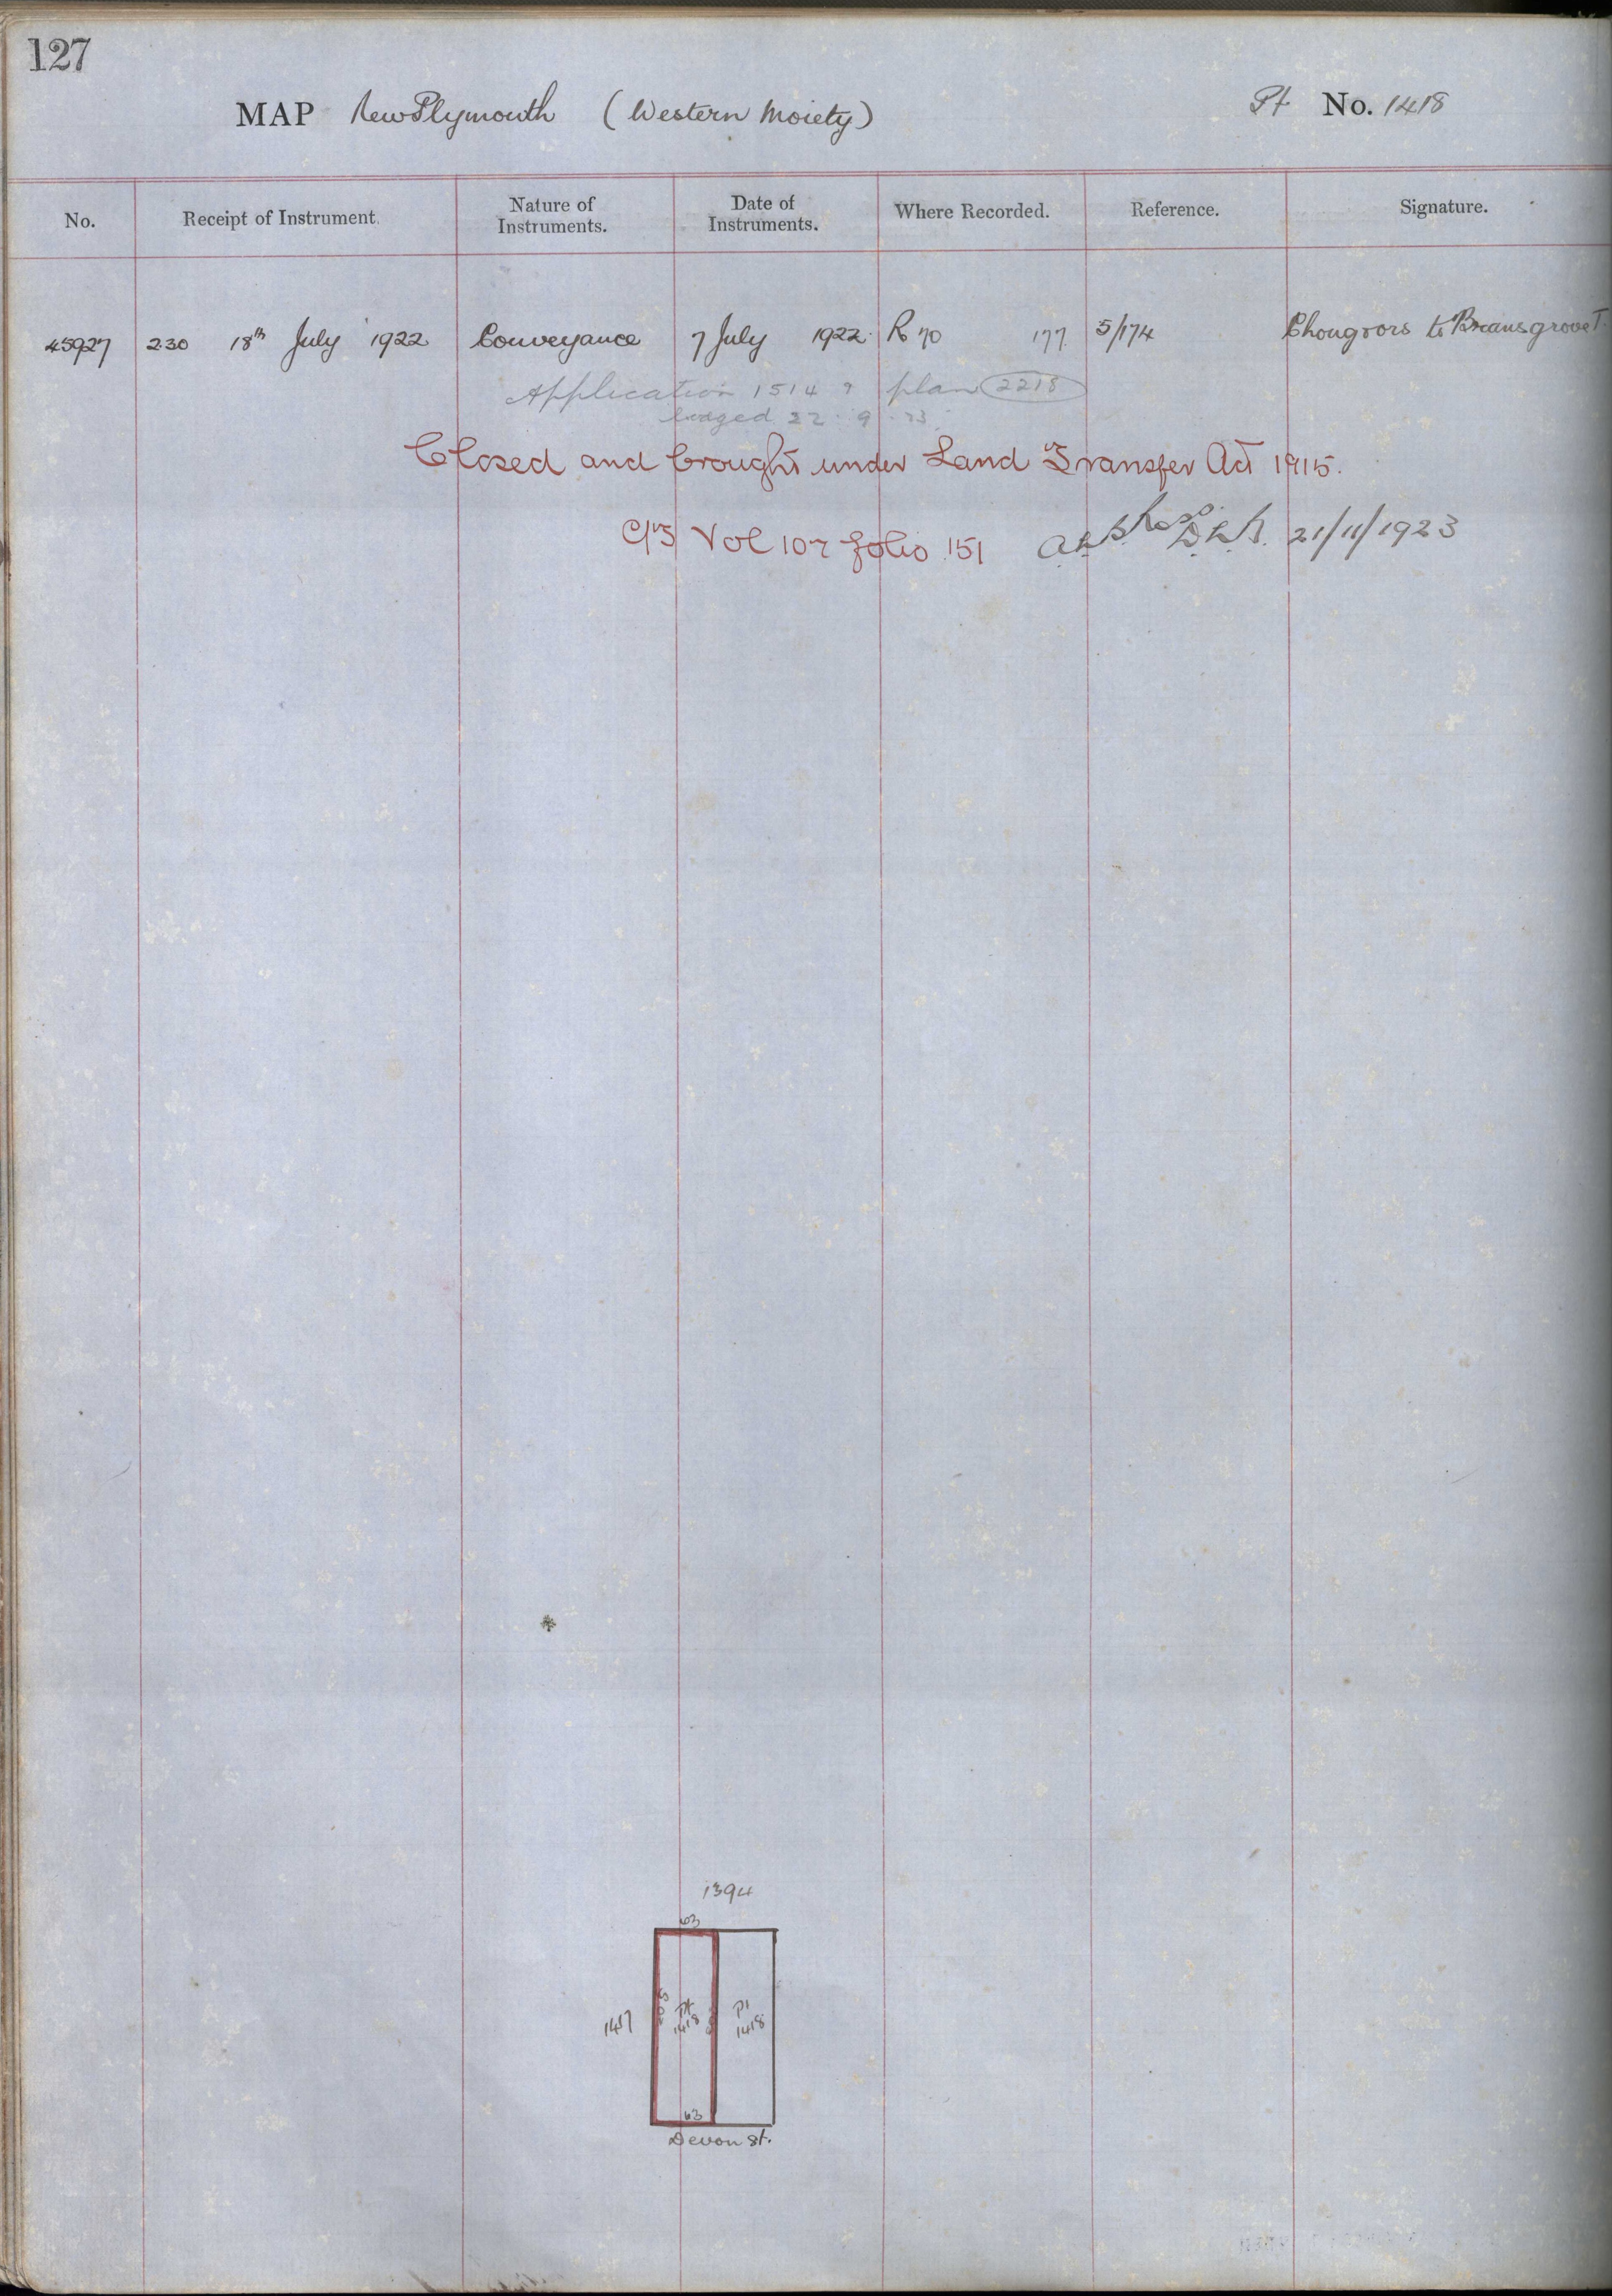 127
MAP New Plymouth (Western Moiety) Pt No. 1418
No. Receipt of Instrument. Nature of Instruments. Date of Instruments. Where Recorded. Reference. Signature.
45927 2.30 18th July 1922 Conveyance 7 July 1922 R 70 177 5/174 to Bransgrove
Application 1514 plan 2218
lodged 22. 9. 23.
Closed and brought under Land Transfer Act 1915.
C/T Vol 107 folio 151 D.L.R. 21/11/1923
1394
63
1417 Pt 1418 Pt 1418
63
Devon St.